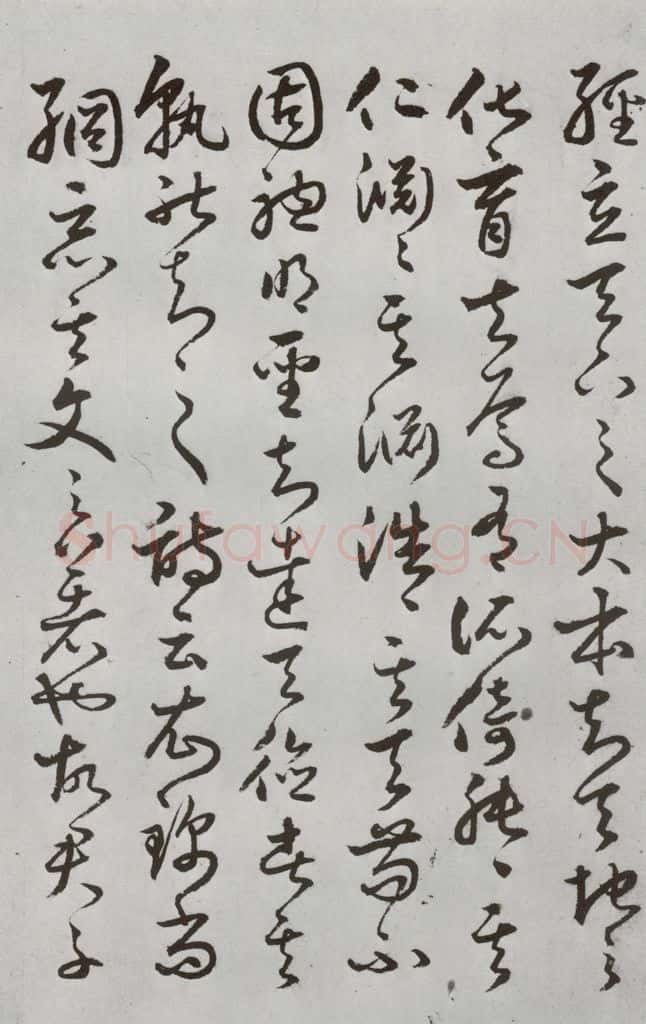 經立天下之大本知天地之
化育夫焉有所倚肫〻其
仁淵〻其淵浩〻其天苟不
固聰明聖知達天德者其
孰能知之詩云衣錦尚
絅惡其文之著也故君子
Shufawang.CN